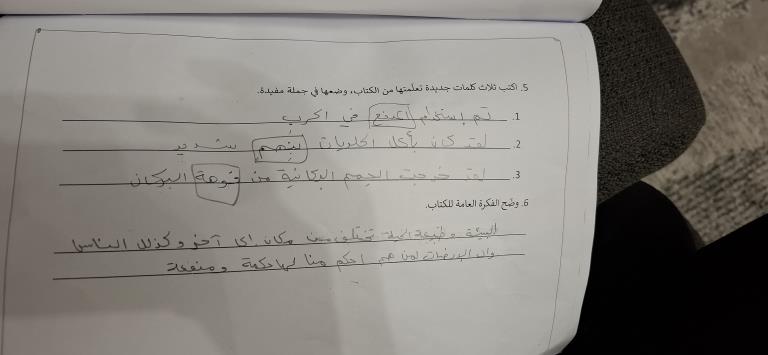 5. اكتب ثلاث كلمات جديدة تعلّمتها من الكتاب، وضعها في جملة مفيدة.
1. تم إستخدام المدفع في الحرب
2. لقد كان يأكل الحلويات بنهم شديد
3. لقد خرجت الحمم البركانية من فوهة البركان
6. وضّح الفكرة العامة للكتاب.
البيئة وطبيعة الحياة تختلف من مكان إلى آخر وكذلك الناس
وان لمن هم احكم منا لها حكمة ومنفعة